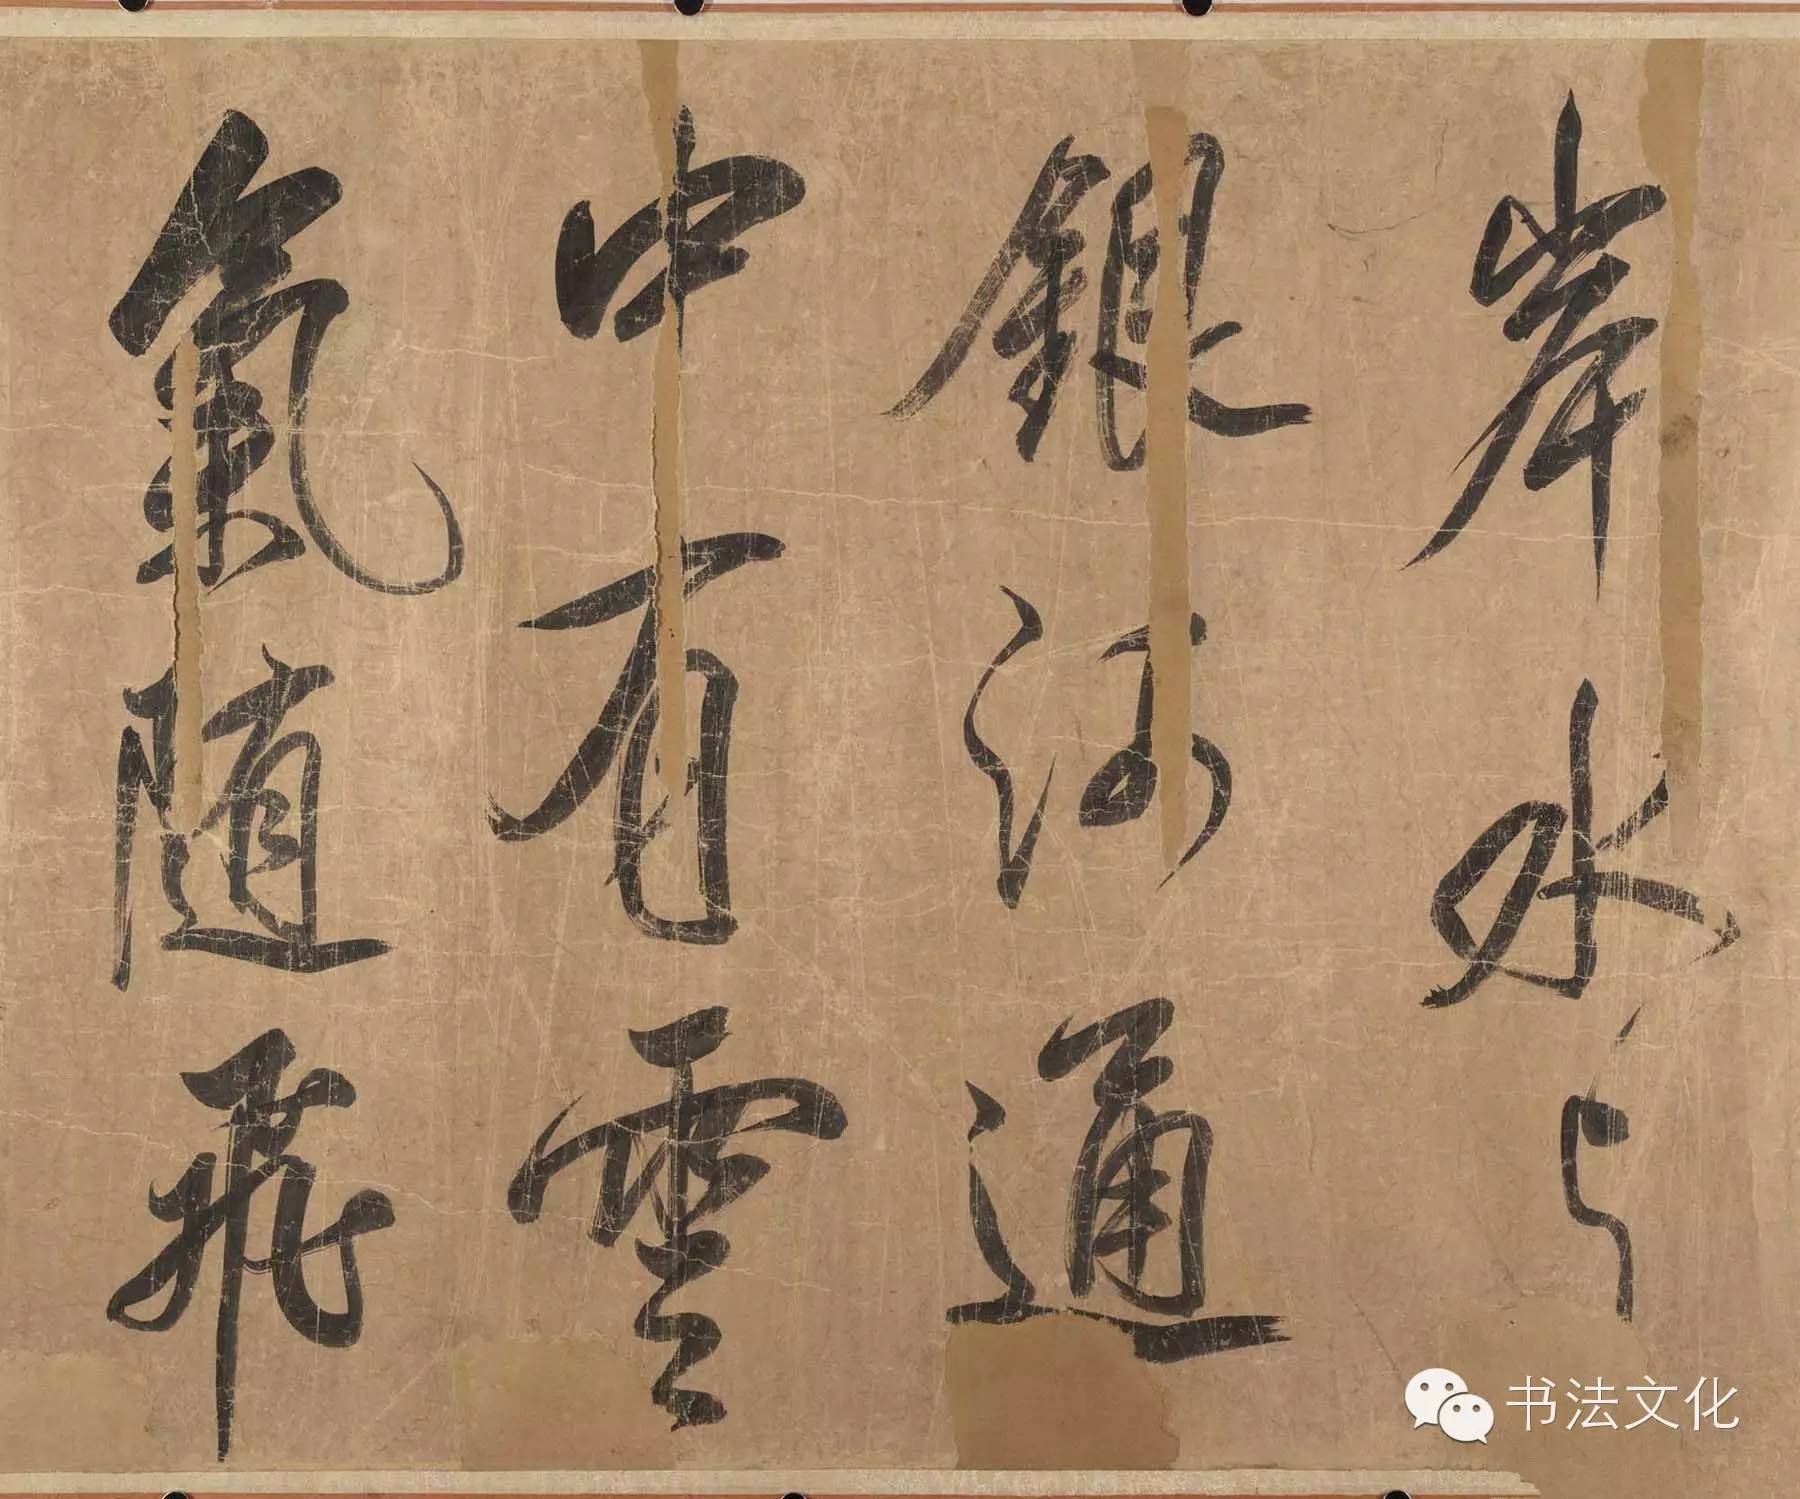 岸水与
銀河通
中有雲
氣随飛
书法文化